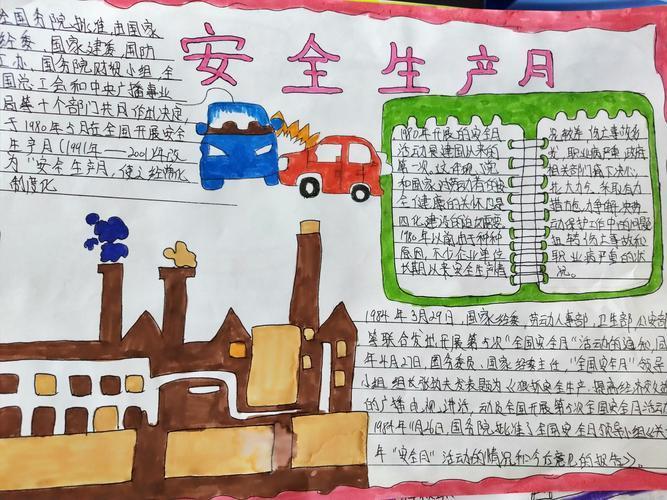 安全生产月
全国务院批准,由国家
经委、国家建委、国防
工办、国务院财贸小组、全
国总工会和中央广播事业
局等十个部门共同作出决定,
于1980年5月在全国开展安全
生产月(1991年—2001年改
为"安全生产月,使之经常化
制度化
1980年开展的安全月
活动是建国以来的
第一次,这体现
和国家对劳动者的安
全健康的关怀,也是
四化建设的迫切需要
1980年以前由于种种
原因,不少企业单位
长期以来安全生产情
况较差,伤亡事故多
发,职业病严重,政府
相关部门痛下决心,
花大力气,采取有力
措施,力争解决劳
动保护工作中的问题
扭转伤亡事故和
职业病严重的状
况。
1984年3月29日,国家经委、劳动人事部、卫生部、公安部
等联合发出开展第5次"全国安全月"活动的通知,同
年4月27日,国务委员、国家经委主任、"全国安全月"领导
小组组长张劲夫发表题为《狠抓安全生产,提高经济效益
的广播电视讲话,动员全国开展第5次全国安全月活动
1984年11月26日,国务院批准了全国安全月领导小组《关于
年"安全月"活动的情况和今后意见的报告》。